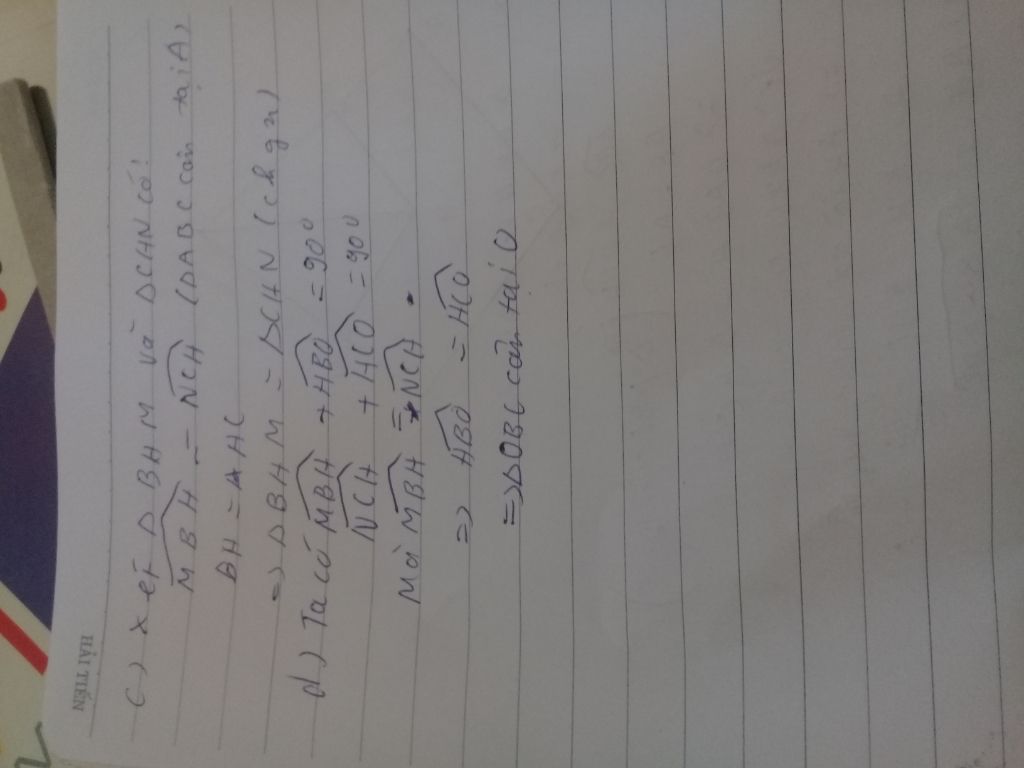 HẢI TIẾN
c) xét Δ BHM và Δ CHN có:
MBH = NCH (ΔABC cân tại A)
BH = AHC
=> Δ BHM = ΔCHN (ch gn)
d) Ta có MBH + HBO = 90⁰
NCH + HCO = 90⁰
Mà MBH = NCH
=> HBO = HCO
=> ΔOBC cân tại O